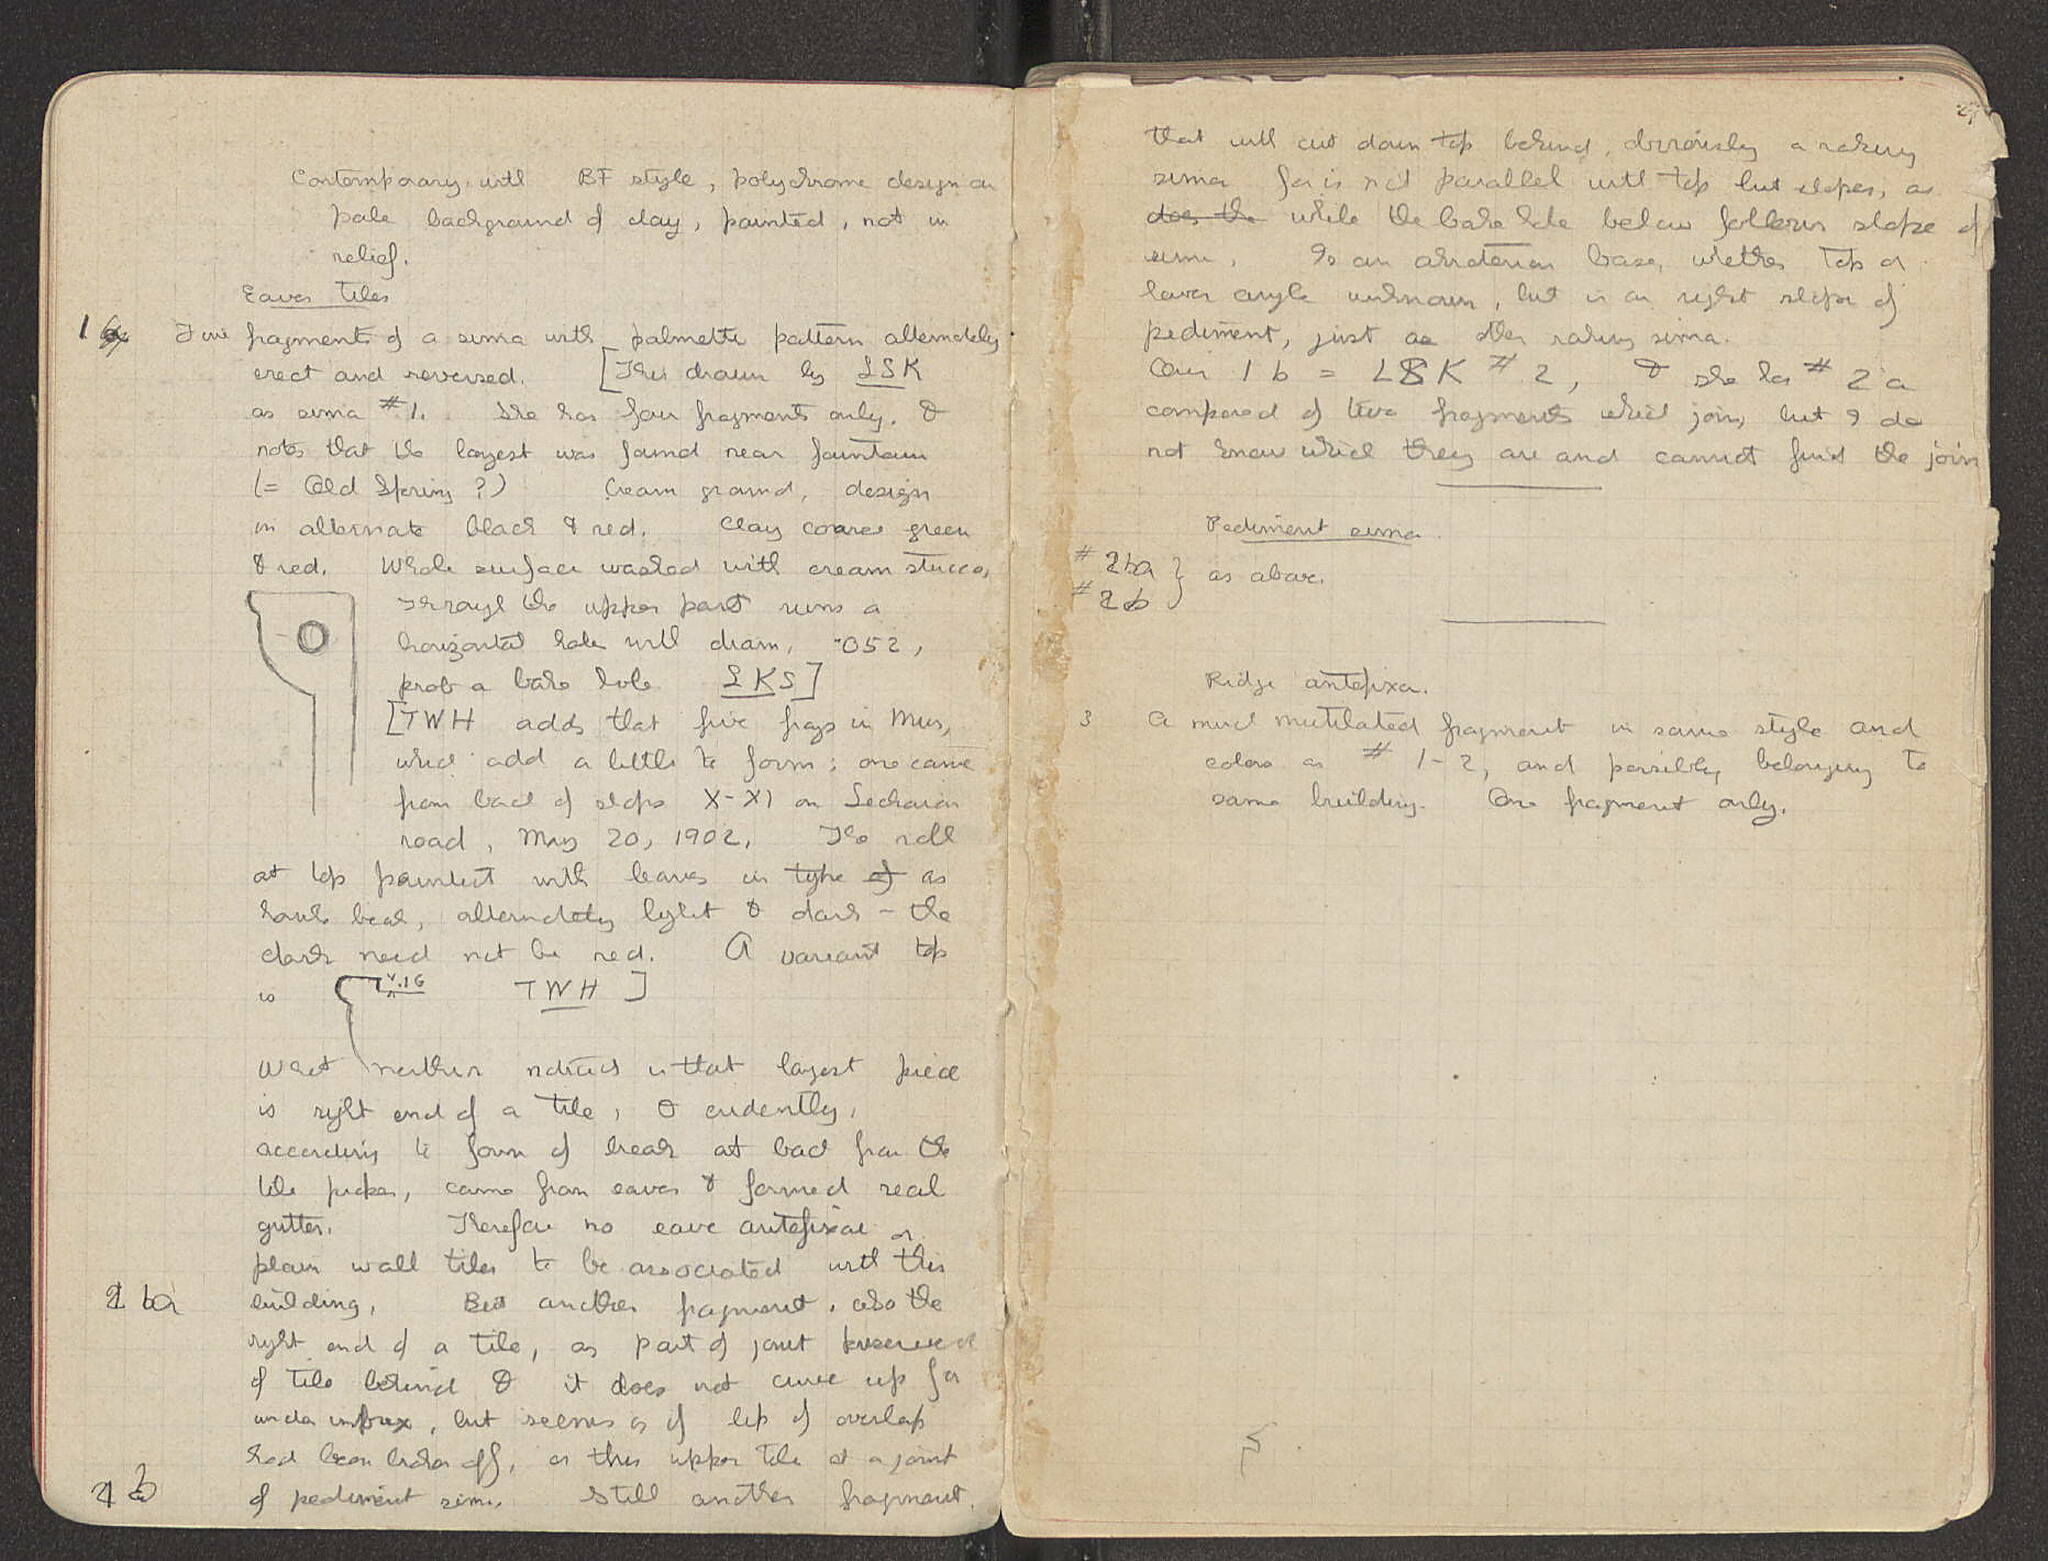 Contemporary with BF style, polychrome design on
pale background of clay, painted, not in
relief.
Eaves Tiles
1 Five fragments of a sima with palmette pattern alternately
erect and reversed. [This drawn by LSK
as sima #1. She has four fragments only, &
notes that the largest was found near fountain
(= Old Spring ?) Cream ground, design
in alternate black & red. Clay coarse green
& red. Whole surface washed with cream stucco,
Through the upper part runs a
horizontal hole with diam, .052,
prob a bake hole LKS]
[TWH adds that five frags in Mus,
which add a little to form; one came
from back of shops X-XI on Lechaion
road, May 20, 1902. The roll
at top painted with leaves in type of as
hawk beak, alternately light & dark - the
dark need not be red. A variant top
is .16 TWH ]
What neither noticed is that largest piece
is right end of a tile, & evidently,
according to form of break at back from the
tile proper, came from eaves & formed real
gutter. Therefore no eave antefixae or
plain wall tiles to be associated with this
2 ba building. But another fragment, also the
right end of a tile, as part of joint preserved
of tile behind & it does not curve up for
under imbrex, but seems as if lip of overlap
had been broken off, as thus upper tile at a joint
2 b of pediment sima. Still another fragment,
27
that with cut down top behind, obviously a raking
sima for is not parallel with top but slopes, as
does the while the bake hole below follows slope of
sima. Is an akroterion base, whether top or
lower angle unknown, but is on right slope of
pediment, just as other raking sima.
Our 1 b = LSK #2, & she has #2a
composed of two fragments which join, but I do
not know which they are and cannot find the join
Pediment sima.
# 2ba } as above.
# 2b
Ridge antefixa.
3 A much mutilated fragment in same style and
colors as # 1-2, and possibly belonging to
same building. One fragment only.